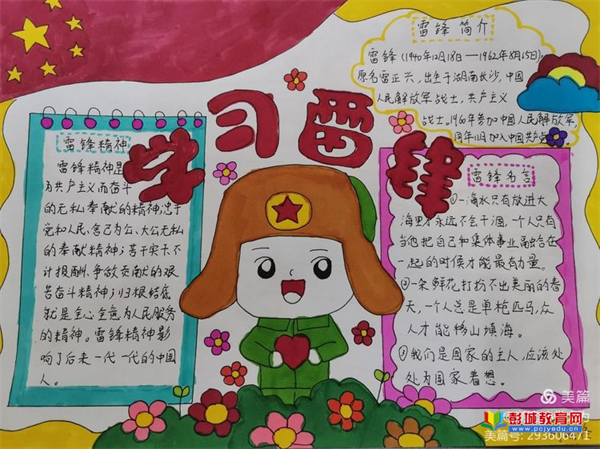 学习雷锋
雷锋简介
雷锋(1940年12月18日—1962年8月15日)
原名雷正兴,出生于湖南长沙,中国
人民解放军战士,共产主义
战士,1960年参加中国人民解放军,
同年11月加入中国共产
雷锋精神
雷锋精神是
为共产主义而奋斗
的无私奉献的精神;忠于
党和人民、舍己为公、大公无私
的奉献精神;苦干实干、不
计报酬、争做贡献的艰
苦奋斗精神;归根结底
就是全心全意为人民服务
的精神。雷锋精神影
响了后来一代一代的中国
人。
雷锋名言
①一滴水只有放进大
海里才永远不会干涸,一个人只有
当他把自己和集体事业融合在
一起的时候才能最有力量。
②一朵鲜花打扮不出美丽的春
天,一个人总是单枪匹马,众
人才能移山填海。
③我们是国家的主人,应该处
处为国家着想。
美篇
彭城教育网
www.pcjyedu.cn
美篇号:293606471